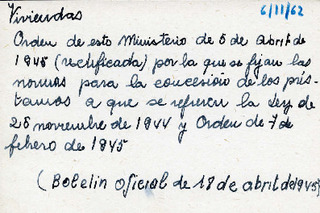 Viviendas
6/11/62
Orden de este Ministerio de 6 de abril de
1945 (rectificada) por la que se fijan las
normas para la concesión de los prés-
tamos a que se refieren la Ley de
25 noviembre de 1944 y Orden de 7 de
febrero de 1945
(Boletin oficial de 18 de abril de 1945)